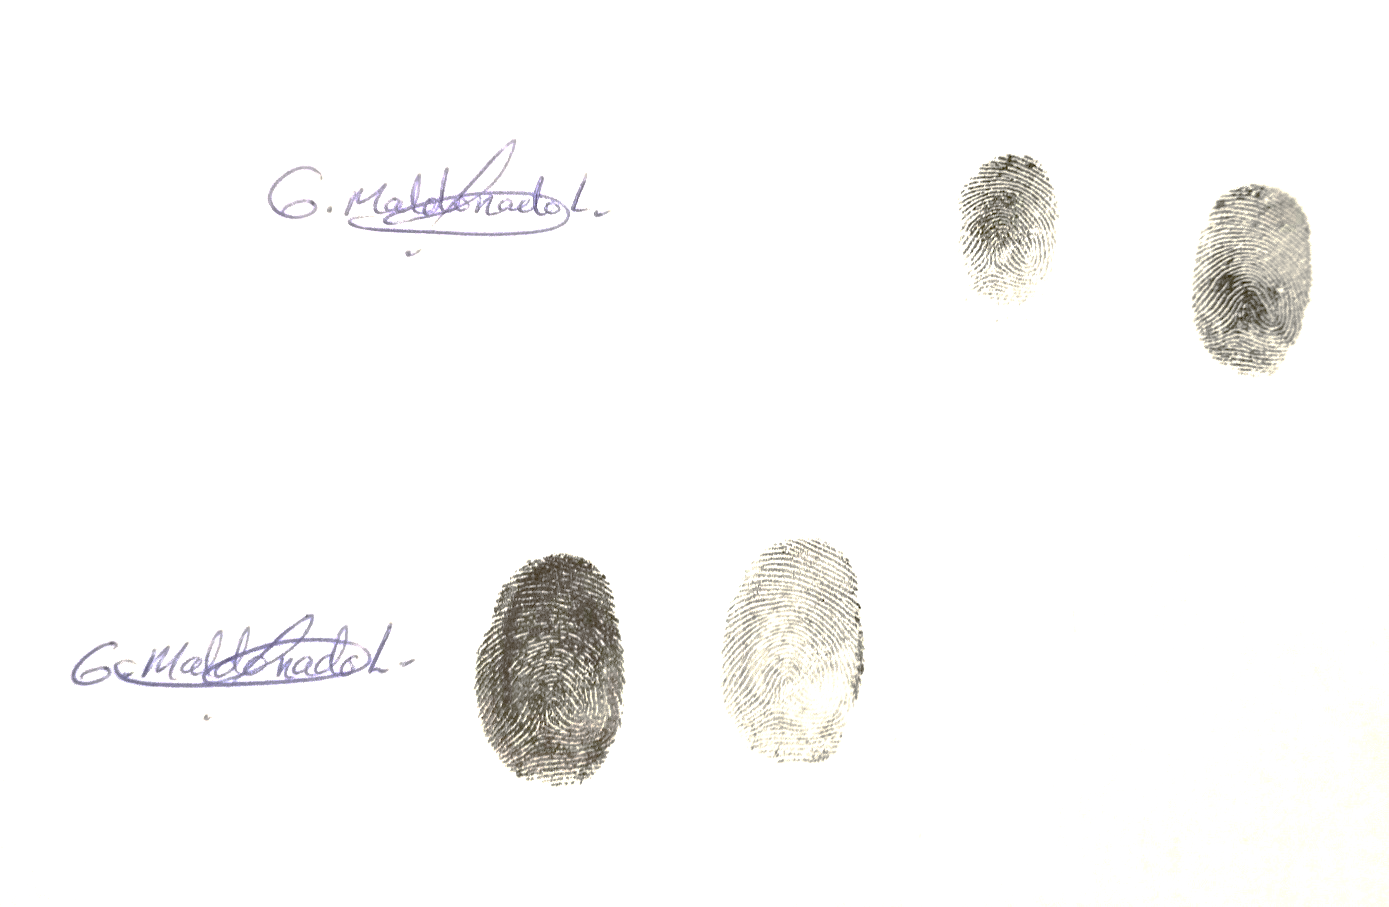 G. Maldonado L.
G. Maldonado L.